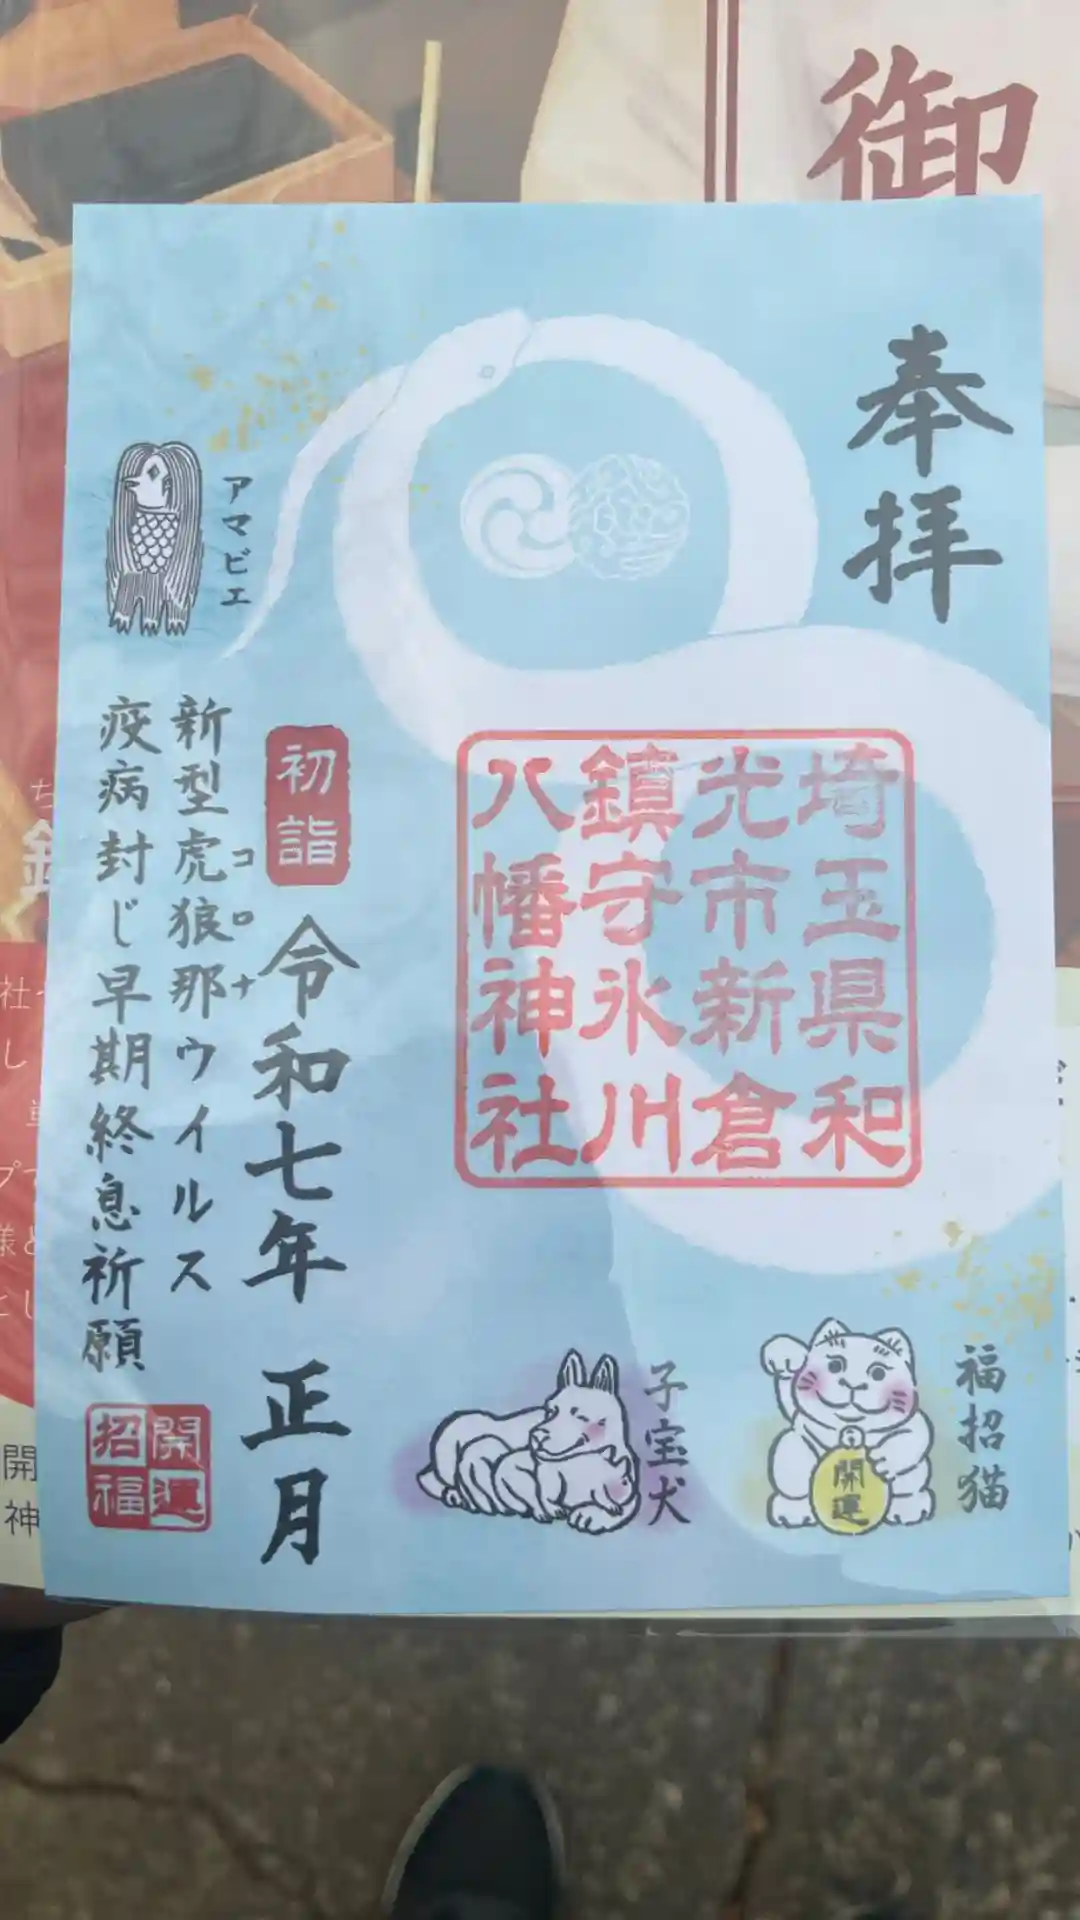 御
奉拝
埼玉県和
光市新倉
鎮守氷川
八幡神社
初詣
令和七年 正月
アマビエ
新型虎狼那ウイルス
コロナ
疫病封じ早期終息祈願
開運
招福
子宝犬
福招猫
開運
開
神